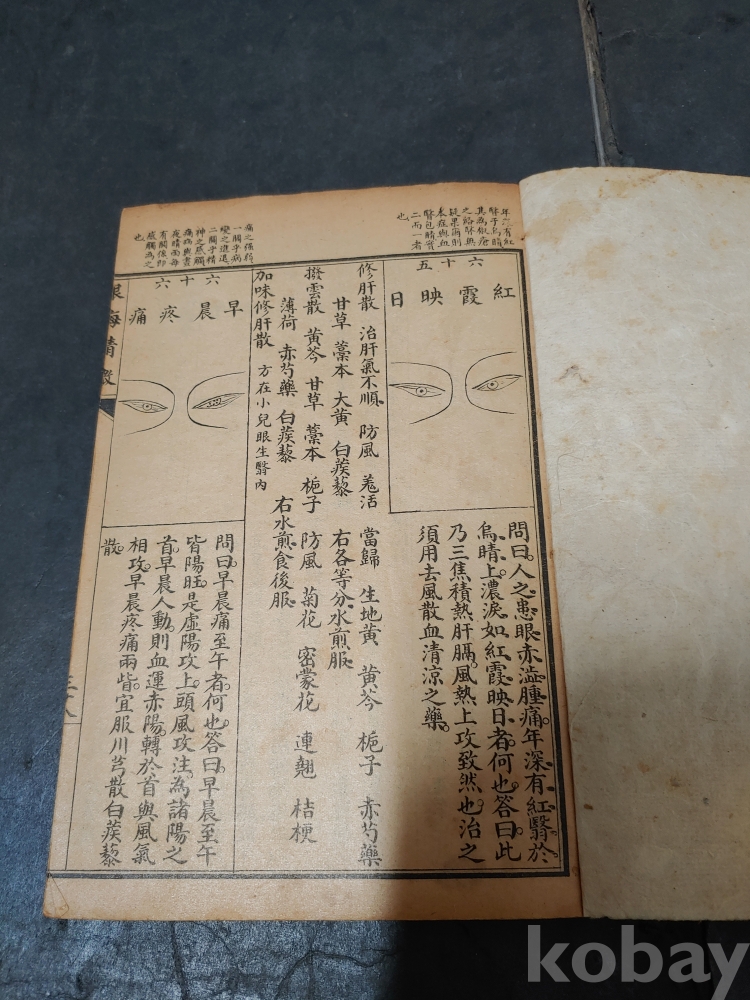 年六十有紅
六十五
紅霞映日
問曰人之患眼赤澁腫痛年深有紅翳於
烏睛上濃淚如紅霞映日者何也答曰此
乃三焦積熱肝膈風熱上攻致然也治之
須用去風散血清凉之藥
修肝散 治肝氣不順 防風 羗活 當歸 生地黄 黄芩 梔子 赤芍藥
甘草 藁本 大黄 白蒺藜 右各等分水煎服
撥雲散 黄芩 甘草 藁本 梔子 防風 菊花 密蒙花 連翹 桔梗
薄荷 赤芍藥 白蒺藜 右水煎食後服
加味修肝散 方在小兒眼生翳内
六十六
早晨疼痛
問曰早晨痛至午者何也答曰早晨至午
皆陽旺是虚陽攻上頭風攻注為諸陽之
首早晨人動則血運赤陽轉於首與風氣
相攻早晨疼痛兩眥宜服川芎散白蒺藜
散
海精微
三八
kobay